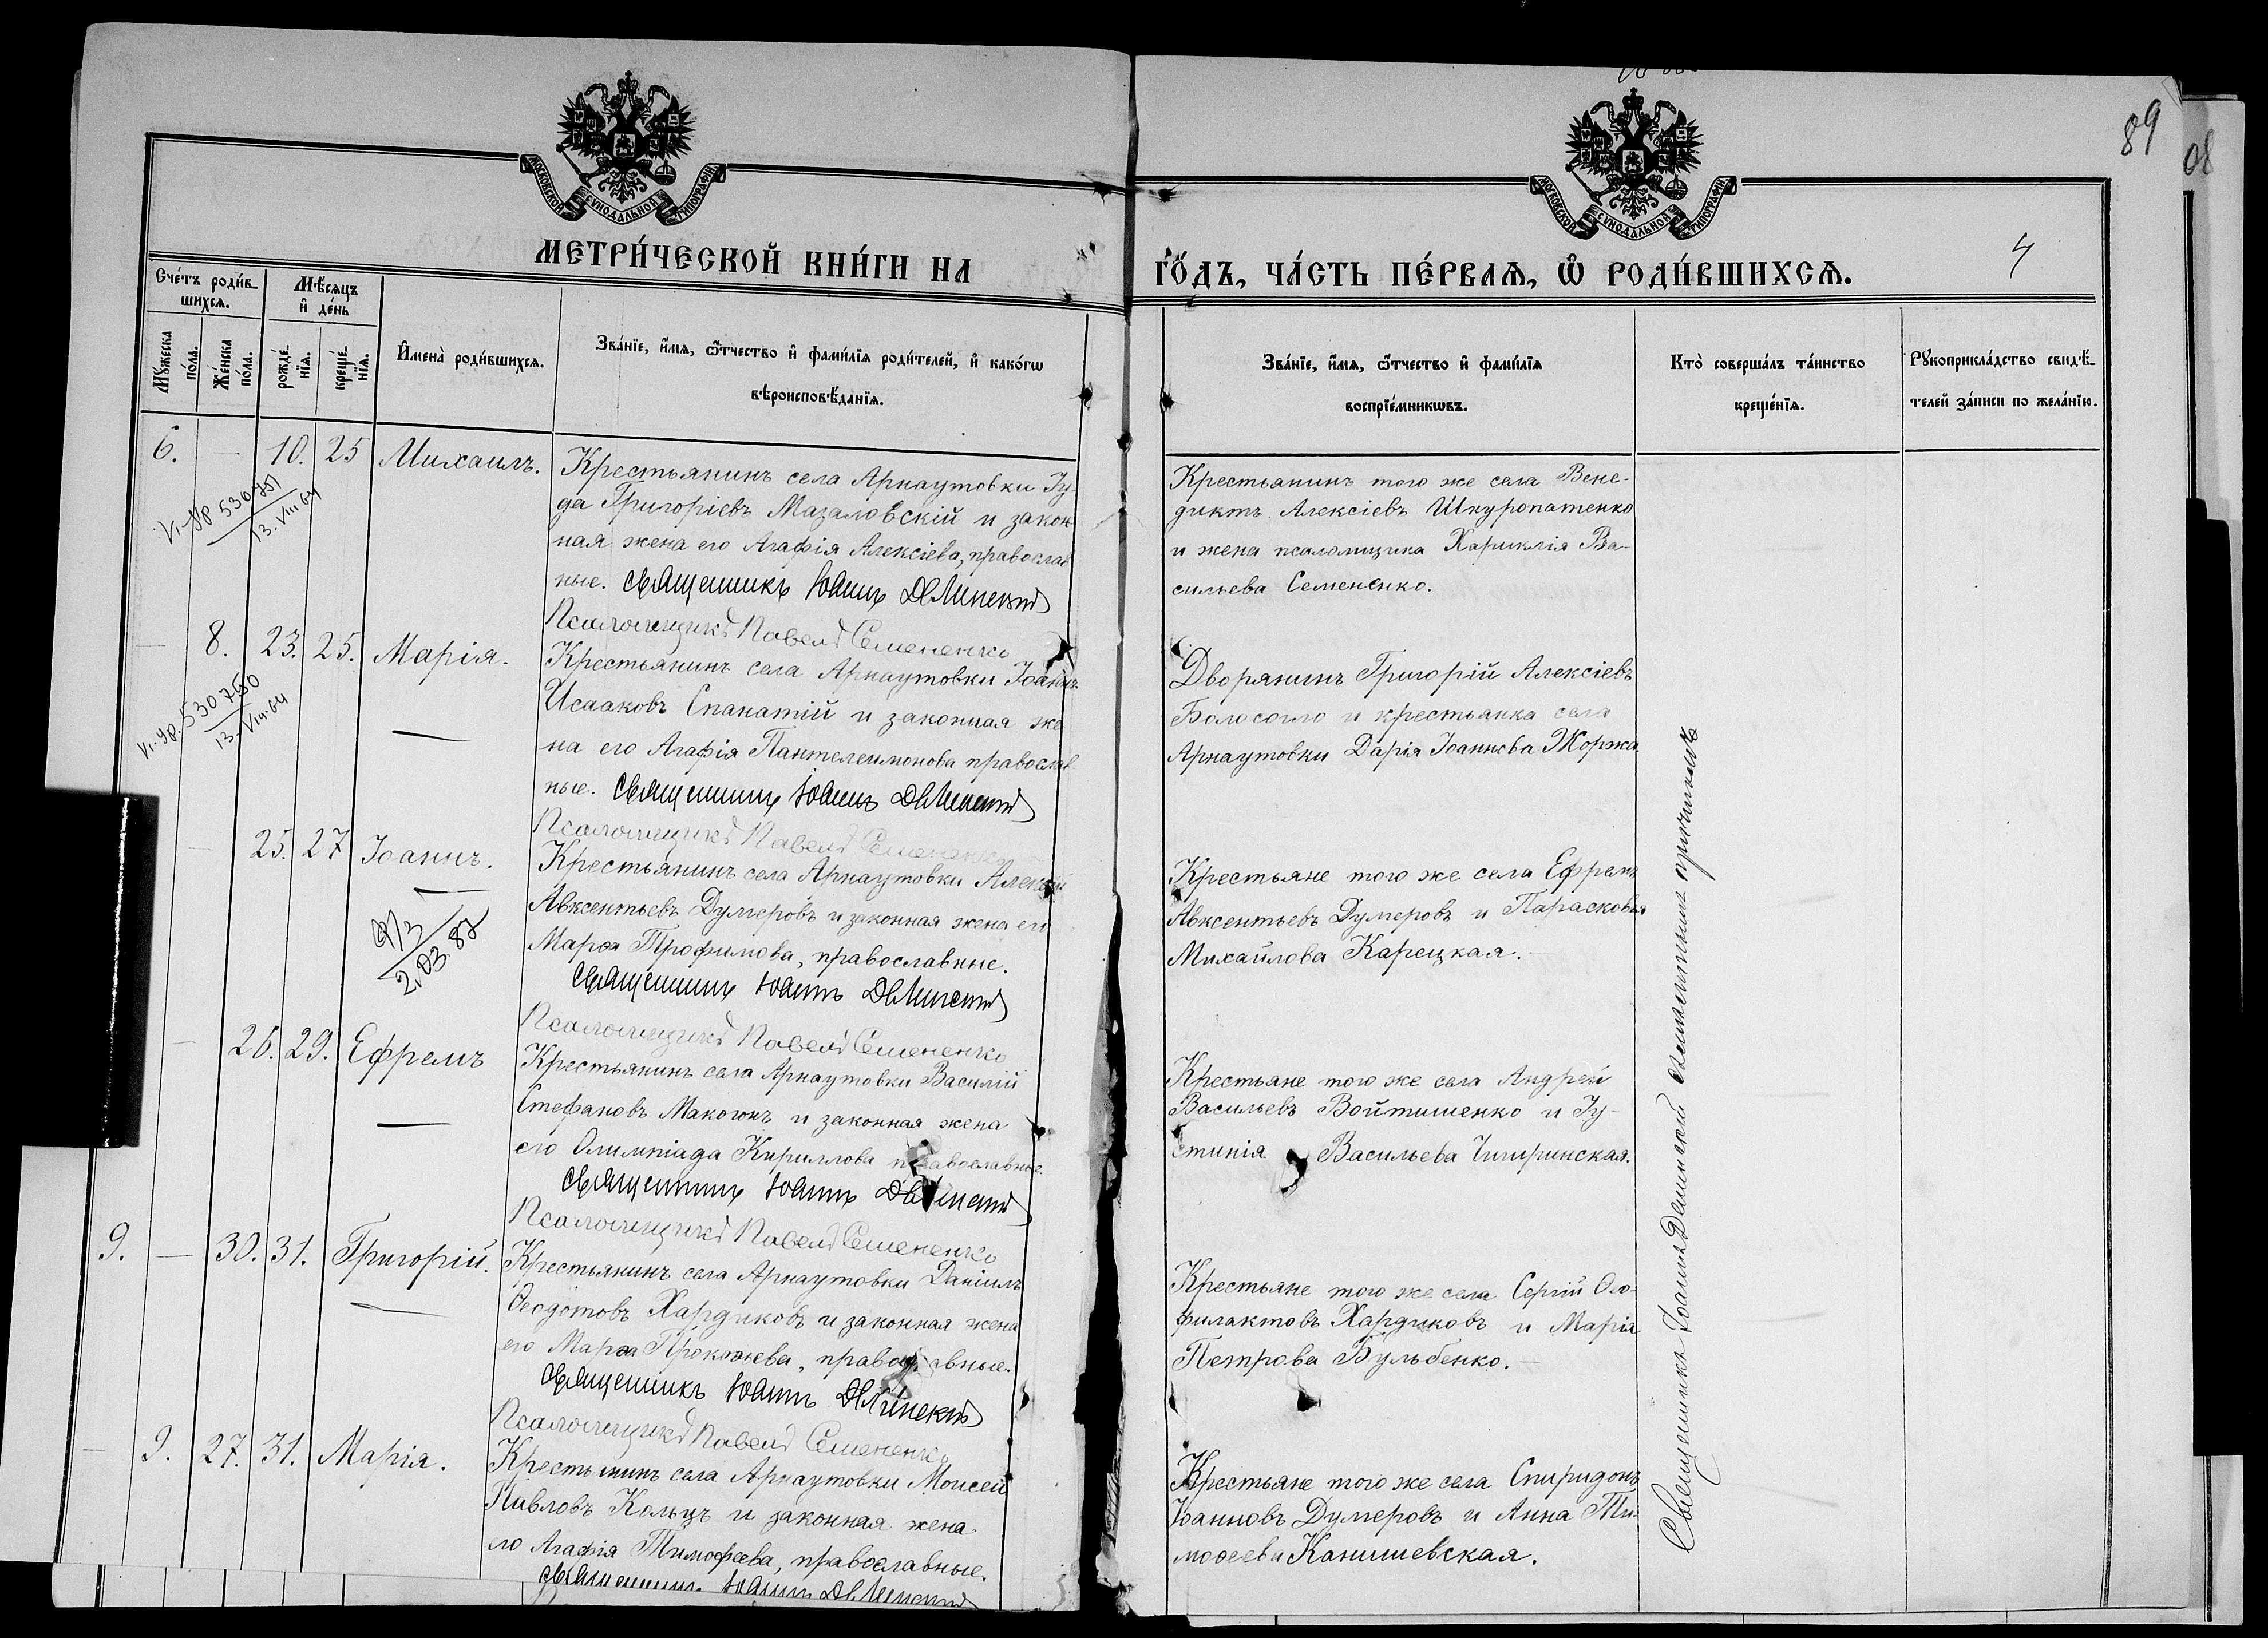 89
08
МОСКОВСКОЙ СѴНОДАЛЬНОЙ ТИПОГРАФІИ
МОСКОВСКОЙ СѴНОДАЛЬНОЙ ТИПОГРАФІИ
МЕТРИ́ЧЕСКОЙ КНИ́ГИ НА
ГО́ДЪ, ЧА́СТЬ ПЕ́РВАѦ, Ѽ РОДИ́ВШИХСѦ.
4
Сче́тъ роди́в-
шихсѧ.
Мѣ́сяцъ
и҆ де́нь
Мꙋ́жеска
по́ла.
Же́нска
по́ла.
рожде́-
нїѧ.
креще́-
нїѧ.
И҆мена̀ роди́вшихсѧ.
Зва́нїе, и҆́мѧ, ѻ҆́тчество и҆ фами́лїѧ роди́телей, и҆ како́гѡ
вѣроисповѣ́данїѧ.
Зва́нїе, и҆́мѧ, ѻ҆́тчество и҆ фами́лїѧ
воспрїе́мникѡвъ.
Кто̀ соверша́лъ та́инство
креще́нїѧ.
Рꙋкоприкла́дство свидѣ́-
телей за́писи по жела́нїю.
6. — 10. 25 Михаилъ.
Крестьянинъ села Арнаутовки Іу-
да Григоріевъ Мазаловскій и закон-
ная жена его Агафія Алексіева, православ-
ные. Священникъ Іоаннъ
Псаломщикъ Павелъ Семененко
Крестьянинъ того же села Вене-
диктъ Алексіевъ Шкуропатенко
и жена псаломщика Хариклія Ва-
сильева Семененко.
530751
13.VIII 64
— 8. 23. 25. Марія.
Крестьянинъ села Арнаутовки Іоаннъ
Исааковъ Спанатій и законная же-
на его Агафія Пантелеимонова православ-
ные. Священникъ Іоаннъ
Псаломщикъ Павелъ Семененко
Дворянинъ Григорій Алексіевъ
Болосогло и крестьянка села
Арнаутовки Дарія Іоаннова Жоржа
530750
13.VIII.64
— 25. 27 Іоаннъ.
Крестьянинъ села Арнаутовки Алексій
Авксентьевъ Думеровъ и законная жена его
Марѳа Трофимова, православные.
Священникъ Іоаннъ
Псаломщикъ Павелъ Семененко
Крестьяне того же села Ефремъ
Авксентьевъ Думеровъ и Парасковья
Михайлова Карецкая.
2.03.87
— 26. 29. Ефремъ
Крестьянинъ села Арнаутовки Василій
Стефановъ Макогонъ и законная жена
его Олимпіада Кириллова православные.
Священникъ Іоаннъ
Псаломщикъ Павелъ Семененко
Крестьяне того же села Андрей
Васильевъ Войтишенко и Іу-
стинія Васильева Чигиринская.
9. — 30. 31. Григорій.
Крестьянинъ села Арнаутовки Даніилъ
Ѳеодотовъ Хардиковъ и законная жена
его Марѳа Прокопіева, православные.
Священникъ Іоаннъ
Псаломщикъ Павелъ Семененко
Крестьяне того же села Сергій Ѳео-
филактовъ Хардиковъ и Марія
Петрова Бульбенко.
— 9. 27. 31. Марія.
Крестьянинъ села Арнаутовки Моисей
Павловъ Кольцъ и законная жена
его Агафія Тимофѣева, православные.
Священникъ Іоаннъ
Крестьяне того же села Спиридонъ
Іоанновъ Думеровъ и Анна Ти-
моѳеева Канишевская.
Священникъ Іоаннъ